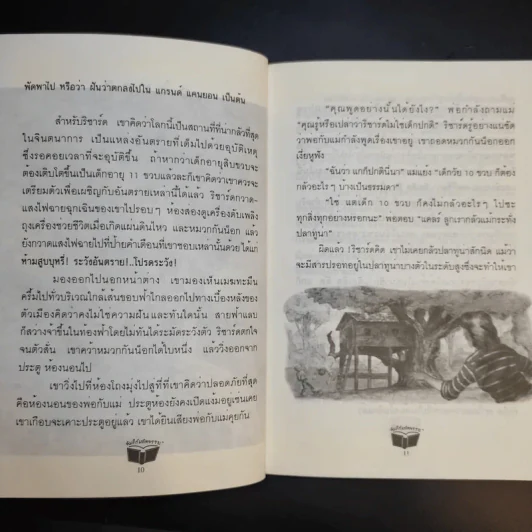 พัดพาไป หรือว่า ฝันว่าตกลงไปใน แกรนด์ แคนยอน เป็นต้น
สำหรับริชาร์ด เขาคิดว่าโลกนี้เป็นสถานที่ที่น่ากลัวที่สุด
ในจินตนาการ เป็นแหล่งอันตรายที่เต็มไปด้วยอุบัติเหตุ
ที่รอคอยเวลาที่จะอุบัติขึ้น ถ้าหากว่าเด็กอายุสิบขวบจะ
ต้องเติบโตขึ้นเป็นเด็กอายุ 11 ขวบแล้วละก็เขาคิดว่าเขาควรจะ
เตรียมตัวเพื่อเผชิญกับอันตรายเหล่านี้ได้แล้ว ริชาร์ดกวาด-
แสงไฟฉายฉุกเฉินของเขาไปรอบๆ ห้องส่องดูเครื่องดับเพลิง
ถุงเครื่องช่วยชีวิตเมื่อเกิดแผ่นดินไหว และหมวกกันน็อก แล้ว
ยังกวาดแสงไฟฉายไปที่ป้ายคำเตือนที่เขาชอบเหล่านั้นด้วย ได้แก่
ห้ามสูบบุหรี่! ระวังอันตราย!...โปรดระวัง!
มองออกไปนอกหน้าต่าง เขามองเห็นเมฆทะมึน
ครึ้มไปทั่วบริเวณใกล้เส้นขอบฟ้าไกลออกไปทางเบื้องหลังของ
ตัวเมืองคิดว่าคงไม่ใช่ความฝันและทันใดนั้น สายฟ้าแลบ
ก็สว่างจ้าขึ้นในท้องฟ้าโดยไม่ทันได้ระมัดระวังตัว ริชาร์ดตกใจ
จนตัวสั่น เขาคว้าหมวกกันน็อกใบหนึ่ง แล้ววิ่งออกจาก
ประตู ห้องนอนไป
เขาวิ่งไปที่ห้องโถงมุ่งไปสู่ที่ที่เขาคิดว่าปลอดภัยที่สุด
คือห้องนอนของพ่อกับแม่ ประตูห้องยังคงเปิดแง้มอยู่เช่นเคย
เขาเกือบจะเคาะประตูอยู่แล้ว เขาได้ยินเสียงพ่อกับแม่คุยกัน
10
"คุณพูดอย่างนั้นได้ยังไง?" พ่อกำลังถามแม่
"คุณรู้หรือเปล่าว่าริชาร์ดไม่ใช่เด็กปกติ" ริชาร์ดรู้อย่างแน่ชัด
ว่าพ่อกับแม่กำลังพูดถึงเรื่องเขาอยู่ เขาถอดหมวกกันน็อกออก
เงี่ยหูฟัง
"ฉันว่า แกก็ปกตินี่นา" แม่แย้ง "เด็กวัย 10 ขวบ ก็ต้อง
กลัวอะไรๆ บ้างเป็นธรรมดา"
"ใช่ แต่เด็ก 10 ขวบ ก็คงไม่กลัวอะไรๆ ไปซะ
ทุกสิ่งทุกอย่างหรอกนะ" พ่อตอบ "แคลร์ ลูกเรากลัวแม้กระทั่ง
ปลาทูน่า"
ผิดแล้ว! ริชาร์ดคิด เขาไม่เคยกลัวปลาทูน่าสักนิด แม้ว่า
จะมีสารปรอทอยู่ในปลาทูน่าบางตัวในระดับสูงซึ่งจะทำให้เขา
11